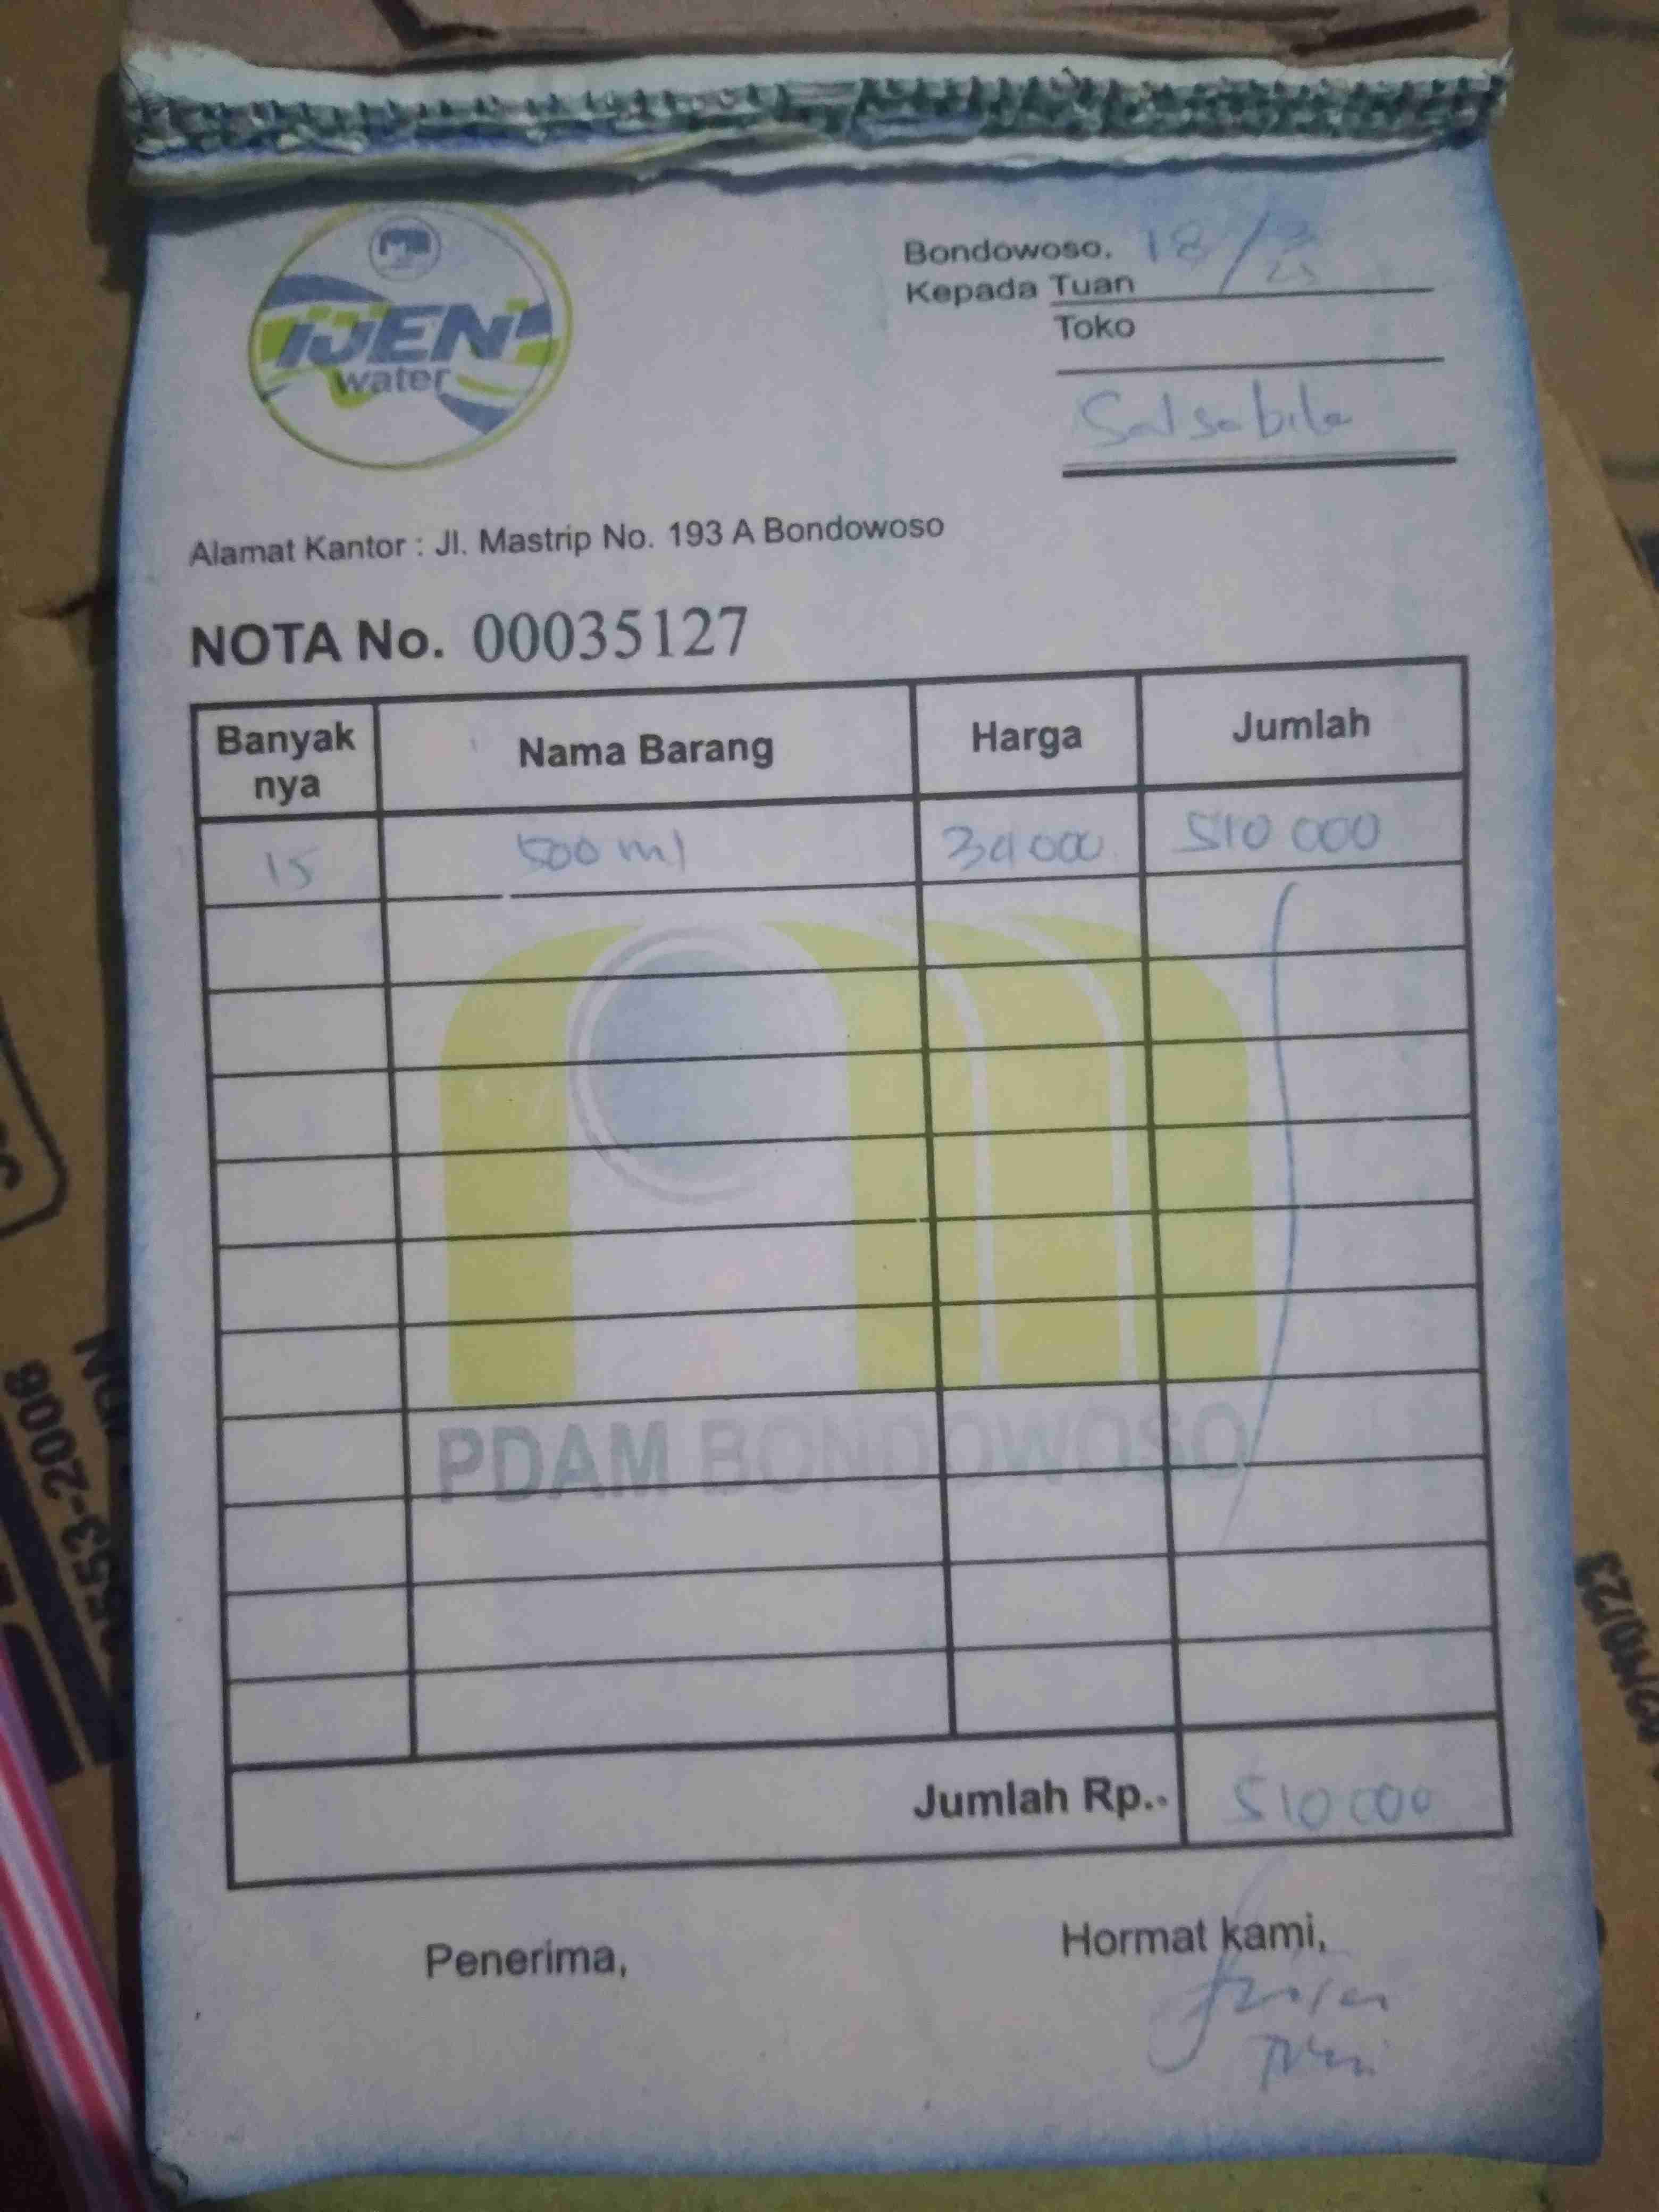 IJEN
water
Bondowoso, 18/3
25
Kepada Tuan
Toko
Salsabila
Alamat Kantor : Jl. Mastrip No. 193 A Bondowoso
NOTA No. 00035127
Banyak nya Nama Barang Harga Jumlah
15 500 ml 34 000 510 000
PDAM BONDOWOSO
Jumlah Rp.. 510 000
Penerima, Hormat kami,
2553-2006